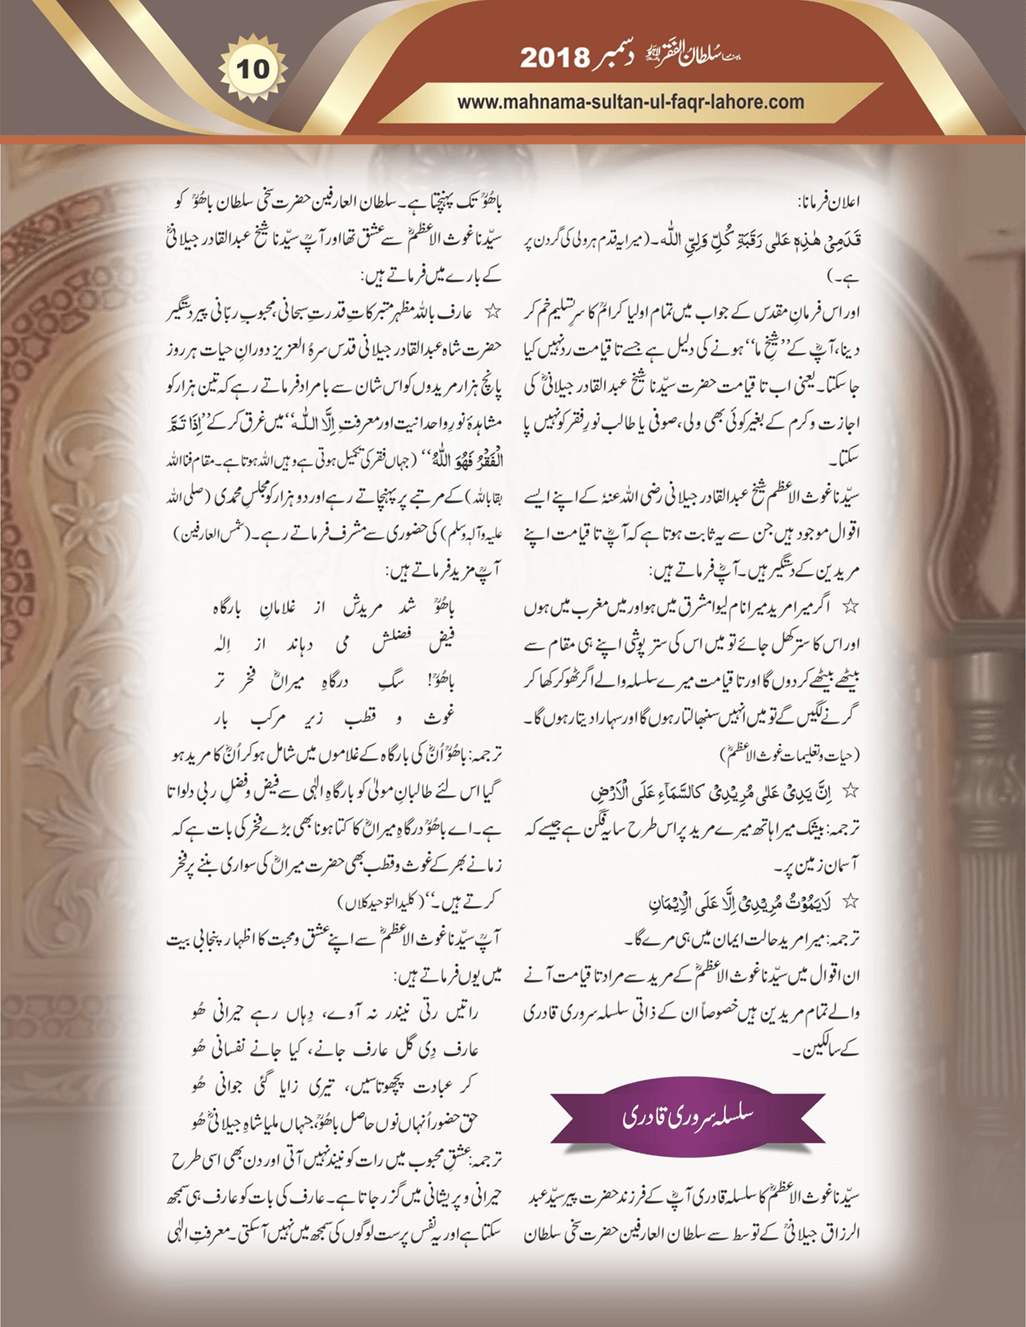 10
ماہنامہ سُلطان الفَقر لاہور دسمبر 2018
www.mahnama-sultan-ul-faqr-lahore.com
اعلان فرمانا:
قَدَمِیْ ھٰذِہٖ عَلٰی رَقَبَۃِ کُلِّ وَلِیِّ اللّٰہ۔ (میرا یہ قدم ہر ولی کی گردن پر
ہے۔)
اور اس فرمانِ مقدس کے جواب میں تمام اولیا کرامؒ کا سرِتسلیم خم کر
دینا، آپؓ کے ’’شیخِ ما‘‘ ہونے کی دلیل ہے جسے تا قیامت رد نہیں کیا
جاسکتا۔ یعنی اب تا قیامت حضرت سیّدنا شیخ عبدالقادر جیلانیؓ کی
اجازت و کرم کے بغیر کوئی بھی ولی، صوفی یا طالب نورِ فقر کو نہیں پا
سکتا۔
سیّدنا غوث الاعظم شیخ عبدالقادر جیلانی رضی اللہ عنہٗ کے اپنے ایسے
اقوال موجود ہیں جن سے یہ ثابت ہوتا ہے کہ آپؓ تا قیامت اپنے
مریدین کے دستگیر ہیں۔ آپؓ فرماتے ہیں:
☆ اگر میرا مرید میرا نام لیوا مشرق میں ہو اور میں مغرب میں ہوں
اور اس کا ستر کھل جائے تو میں اس کی ستر پوشی اپنے ہی مقام سے
بیٹھے بیٹھے کردوں گا اور تا قیامت میرے سلسلہ والے اگر ٹھوکر کھا کر
گرنے لگیں گے تو میں انہیں سنبھالتا رہوں گا اور سہارا دیتا رہوں گا۔
(حیات و تعلیمات غوث الاعظمؓ)
☆ اِنَّ یَدِیْ عَلٰی مُرِیْدِیْ کَالسَّمَآءِ عَلَی الْاَرْضِ
ترجمہ: بیشک میرا ہاتھ میرے مرید پر اس طرح سایہ فگن ہے جیسے کہ
آسمان زمین پر۔
☆ لَایَمُوْتُ مُرِیْدِیْ اِلَّا عَلَی الْاِیْمَانِ
ترجمہ: میرا مرید حالت ایمان میں ہی مرے گا۔
ان اقوال میں سیّدنا غوث الاعظمؓ کے مرید سے مراد تا قیامت آنے
والے تمام مریدین ہیں خصوصاً ان کے ذاتی سلسلہ سروری قادری
کے سالکین۔
سلسلہ سروری قادری
سیّدنا غوث الاعظمؓ کا سلسلہ قادری آپؓ کے فرزند حضرت پیر سیّد عبد
الرزاق جیلانیؒ کے توسط سے سلطان العارفین حضرت سخی سلطان
باھُوؒ تک پہنچتا ہے۔ سلطان العارفین حضرت سخی سلطان باھُوؒ کو
سیّدنا غوث الاعظمؓ سے عشق تھا اور آپؒ سیّدنا شیخ عبدالقادر جیلانیؓ
کے بارے میں فرماتے ہیں:
☆ عارف باللہ مظہرِ متبرکاتِ قدرتِ سبحانی، محبوبِ ربّانی پیر دستگیر
حضرت شاہ عبدالقادر جیلانی قدس سرہُ العزیز دورانِ حیات ہر روز
پانچ ہزار مریدوں کو اس شان سے بامراد فرماتے رہے کہ تین ہزار کو
مشاہدۂ نورِ واحدانیت اور معرفتِ اِلَّا اللّٰہ‘‘ میں غرق کرکے ’’اِذَا تَمَّ
الْفَقْرُ فَھُوَ اللّٰہُ‘‘ (جہاں فقر کی تکمیل ہوتی ہے وہیں اللہ ہوتا ہے۔ مقام فنا اللہ
بقا باللہ) کے مرتبے پر پہنچاتے رہے اور دو ہزار کو مجلسِ محمدی (صلی اللہ
علیہ وآلہٖ وسلم) کی حضوری سے مشرف فرماتے رہے۔ (شمس العارفین)
آپؒ مزید فرماتے ہیں:
باھُوؒ شد مریدش از غلامانِ بارگاہ
فیض فضلش می دہاند از اِلٰہ
باھُوؒ! سگِ درگاہِ میراںؓ فخر تر
غوث و قطب زیر مرکب بار
ترجمہ: باھُوؒ اُنؓ کی بارگاہ کے غلاموں میں شامل ہو کر اُنؓ کا مرید ہو
گیا اس لئے طالبانِ مولیٰ کو بارگاہِ الٰہی سے فیض و فضلِ ربی دلواتا
ہے۔ اے باھُوؒ درگاہِ میراںؓ کا کتا ہونا بھی بڑے فخر کی بات ہے کہ
زمانے بھر کے غوث و قطب بھی حضرت میراںؓ کی سواری بننے پر فخر
کرتے ہیں۔‘‘ (کلید التوحید کلاں)
آپؒ سیّدنا غوث الاعظمؓ سے اپنے عشق و محبت کا اظہار پنجابی بیت
میں یوں فرماتے ہیں:
راتیں رتی نیندر نہ آوے، دِہاں رہے حیرانی ھُو
عارف دِی گل عارف جانے، کیا جانے نفسانی ھُو
کر عبادت پچھوتاسیں، تیری زایا گئی جوانی ھُو
حق حضور اُنہاں نوں حاصل باھُوؒ، جہاں ملیا شاہ جیلانیؓ ھُو
ترجمہ: عشقِ محبوب میں رات کو نیند نہیں آتی اور دن بھی اسی طرح
حیرانی و پریشانی میں گزر جاتا ہے۔ عارف کی بات کو عارف ہی سمجھ
سکتا ہے اور یہ نفس پرست لوگوں کی سمجھ میں نہیں آسکتی۔ معرفتِ الٰہی